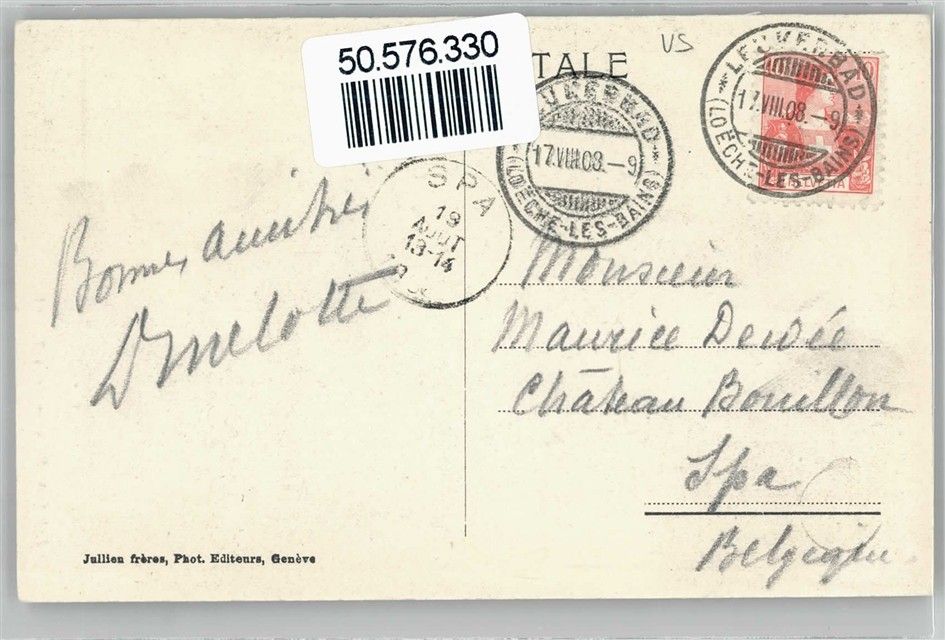 50.576.330
TALE
VS
LEUKERBAD
17.VIII.08.–9
(LOËCHE-LES-BAINS)
HELVETIA
UKERBAD
17.VIII.08.–9
(LOËCHE-LES-BAINS)
SPA
19
AOUT
13-14
Bonnes amitiés
Dmelotte
Monsieur
Maurice Dewée
Château Bouillon
Spa
Belgique
Jullien frères, Phot. Editeurs, Genève